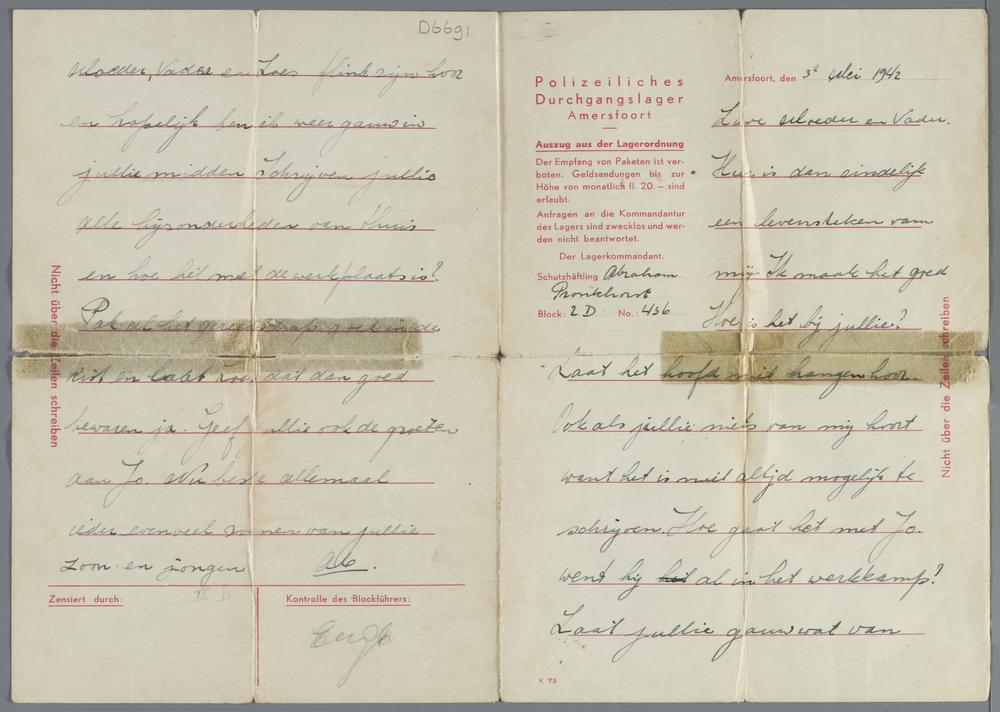 D6691
Polizeiliches
Durchgangslager
Amersfoort
Auszug aus der Lagerordnung
Der Empfang von Paketen ist ver-
boten. Geldsendungen bis zur
Höhe von monatlich fl. 20.— sind
erlaubt.
Anfragen an die Kommandantur
des Lagers sind zwecklos und wer-
den nicht beantwortet.
Der Lagerkommandant.
Schutzhäftling Abraham
Pronkhorst
Block: 2 D No.: 436
Amersfoort, den 3e Mei 1942
Lieve Moeder en Vader.
Hier is dan eindelijk
een levensteken van
mij Ik maak het goed
Hoe is het bij jullie?
Laat het hoofd niet hangen hoor.
Ook als jullie niets van mij hoort
want het is niet altijd mogelijk te
schrijven. Hoe gaat het met Jo.
went hij het al in het werkkamp?
Laat jullie gauw wat van
K 73
Nicht über die Zeilen schreiben
Moeder, Vader en Loes flink zijn hoor
en hopelijk ben ik weer gauw in
jullie midden Schrijven jullie
alle bijzonderheden van thuis
en hoe het met de werkplaats is?
Pak al het gereedschap goed in de
kist en laat Loes dat dan goed
bewaren ja. Geef jullie ook de groeten
aan Jo. Nu beste allemaal
ieder evenveel zoenen van jullie
Zoon en jongen Ab.
Zensiert durch:
Kontrolle des Blockführers:
Nicht über die Zeilen schreiben